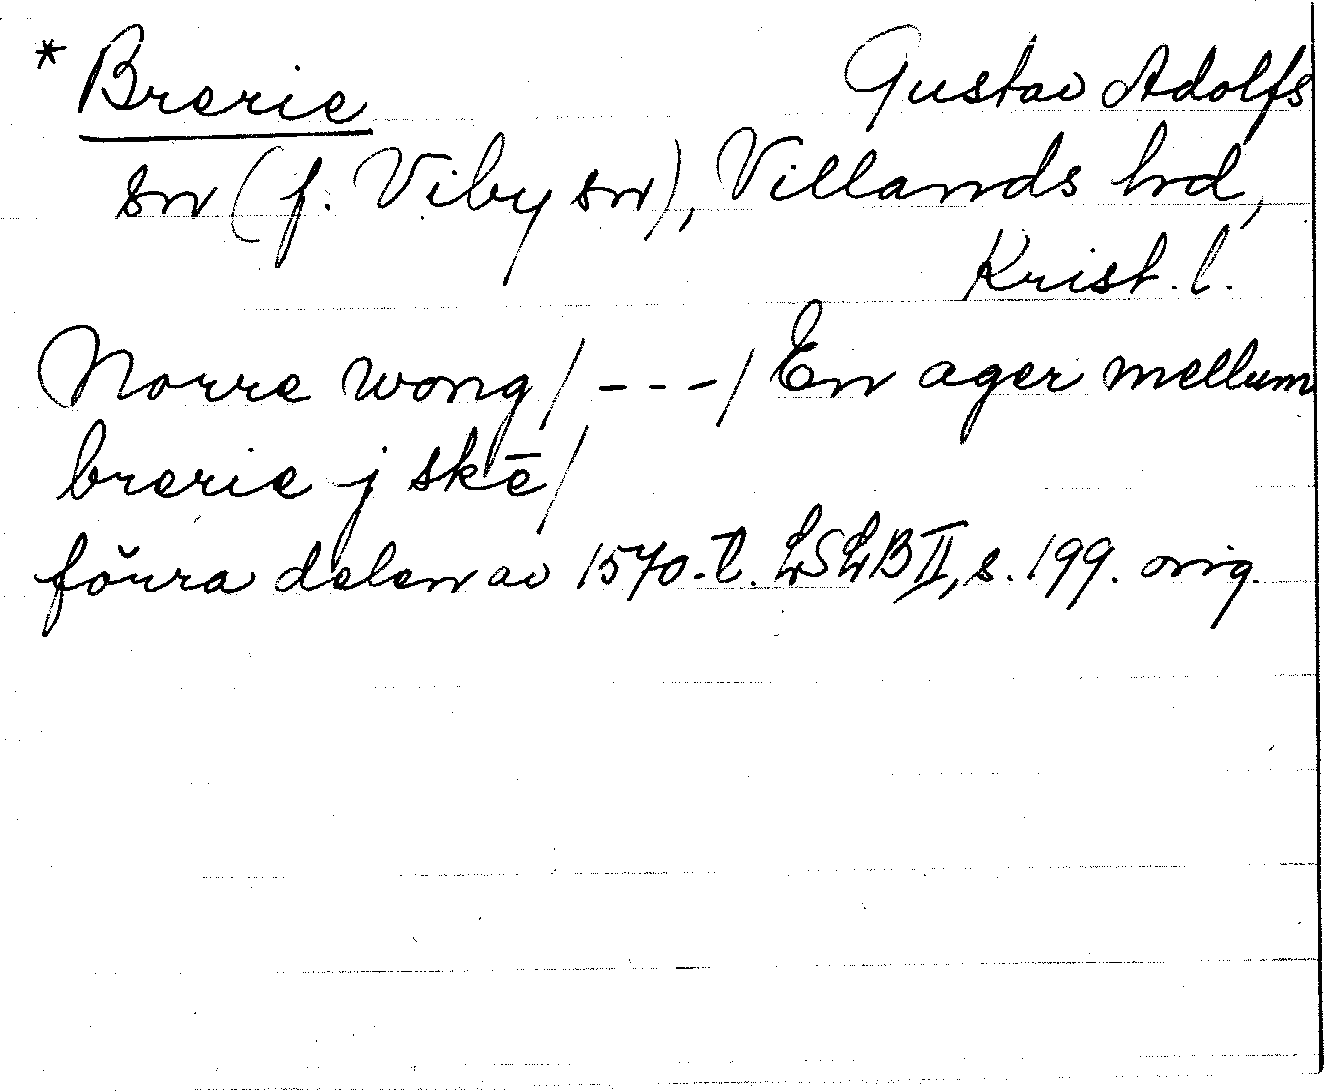 * Brerie Gustav Adolfs
sn (f. Viby sn), Villands hd,
Krist. l.
Norre wong / - - - / En ager mellum
brerie j skē /
förra delen av 1570-t. LSLB II, s. 199. orig.